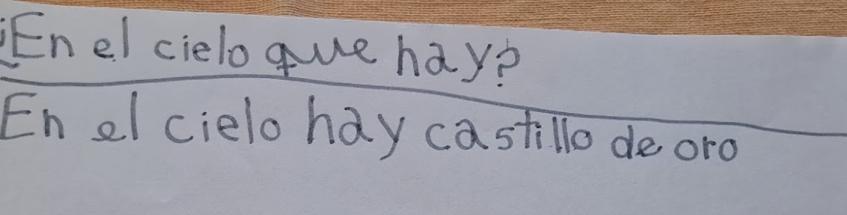 ¿En el cielo que hay?
En el cielo hay castillo de oro